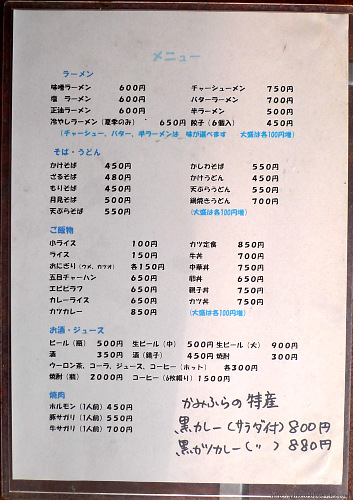 メニュー
ラーメン
味噌ラーメン 600円 チャーシューメン 750円
塩 ラーメン 600円 バターラーメン 700円
正油ラーメン 600円 半ラーメン 500円
冷やしラーメン（夏季のみ） 650円 餃子（6個入） 450円
（チャーシュー、バター、半ラーメンは 味が選べます 大盛は各100円増）
そば・うどん
かけそば 450円 かしわそば 550円
ざるそば 480円 かけうどん 450円
もりそば 450円 天ぷらうどん 550円
月見そば 500円 鍋焼きうどん 700円
天ぷらそば 550円 （大盛は各100円増）
ご飯物
小ライス 100円 カツ定食 850円
ライス 150円 牛丼 700円
おにぎり（ウメ、カツオ） 各150円 中華丼 750円
五目チャーハン 650円 丼 650円
エビピラフ 650円 親子丼 750円
カレーライス 650円 カツ丼 750円
カツカレー 850円 （大盛は各100円増）
お酒・ジュース
ビール（瓶） 500円 生ビール（中） 500円 生ビール（大） 900円
酒 350円 酒（銚子） 450円 焼酎 300円
ウーロン茶、コーラ、ジュース、コーヒー（ホット） 各300円
焼酎（瓶） 2000円 コーヒー（6枚綴り） 1500円
焼肉
ホルモン（1人前） 450円
豚サガリ（1人前） 550円
牛サガリ（1人前） 700円
かみふらの特産
黒カレー（サラダ付）800円
黒カツカレー（〃）880円